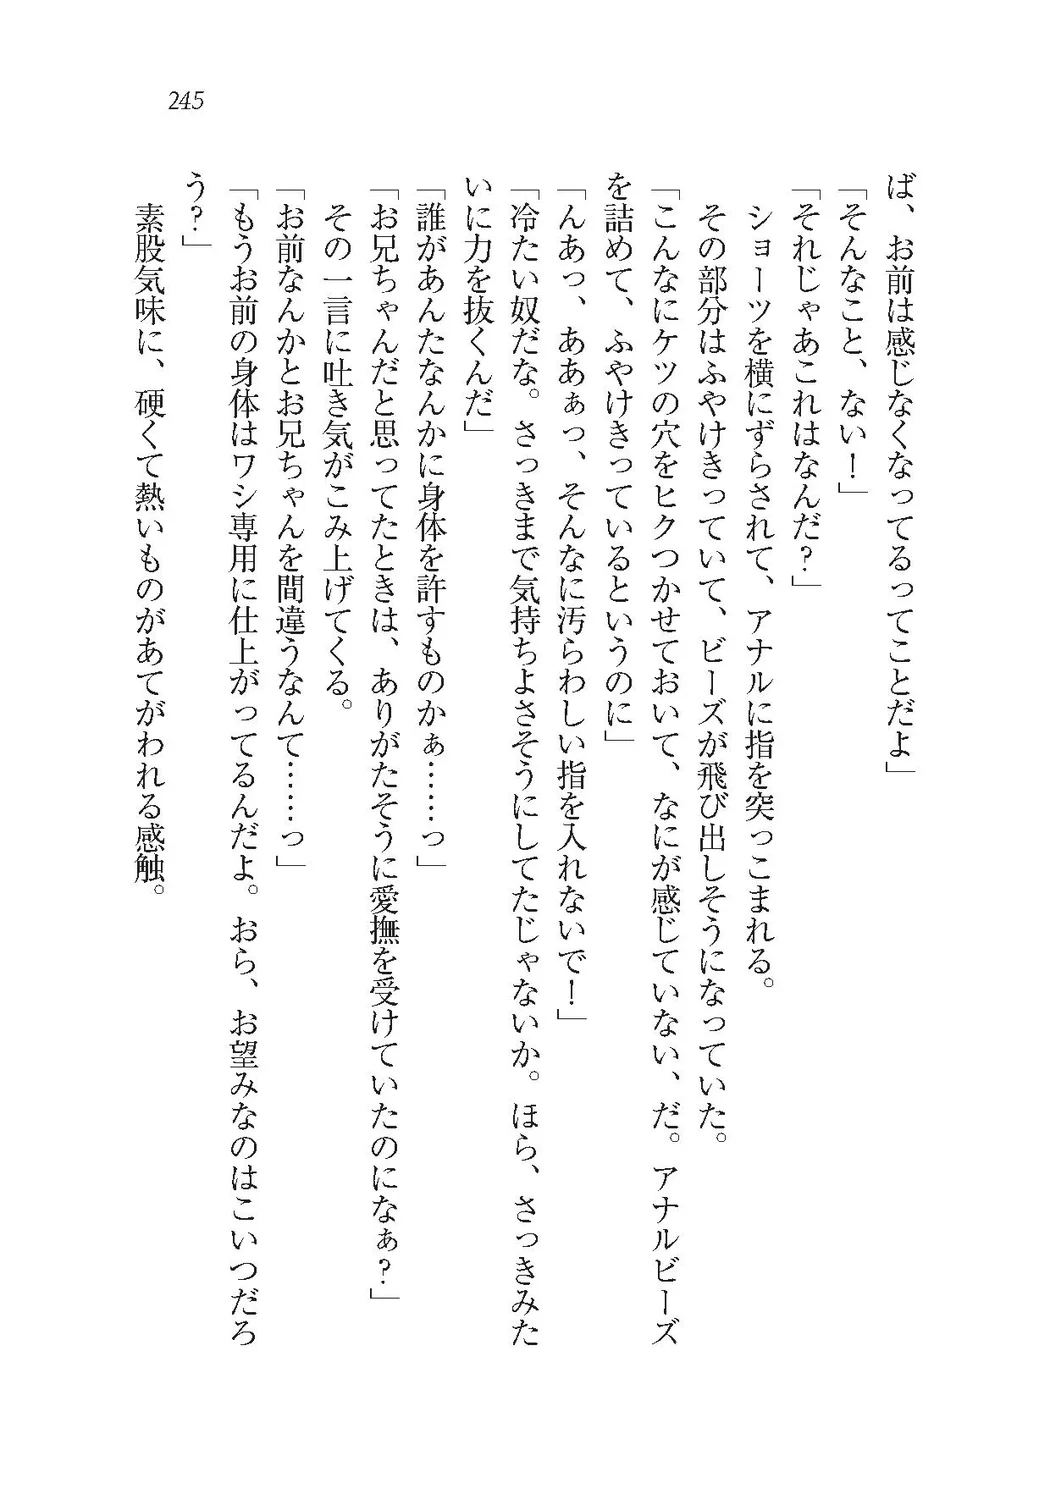 245
ば、お前は感じなくなってるってことだよ」
「そんなこと、ない！」
「それじゃあこれはなんだ？」
ショーツを横にずらされて、アナルに指を突っこまれる。
その部分はふやけきっていて、ビーズが飛び出しそうになっていた。
「こんなにケツの穴をヒクつかせておいて、なにが感じていない、だ。アナルビーズ
を詰めて、ふやけきっているというのに」
「んあっ、ああぁっ、そんなに汚らわしい指を入れないで！」
「冷たい奴だな。さっきまで気持ちよさそうにしてたじゃないか。ほら、さっきみた
いに力を抜くんだ」
「誰があんたなんかに身体を許すものかぁ……っ」
「お兄ちゃんだと思ってたときは、ありがたそうに愛撫を受けていたのになぁ？」
その一言に吐き気がこみ上げてくる。
「お前なんかとお兄ちゃんを間違うなんて……っ」
「もうお前の身体はワシ専用に仕上がってるんだよ。おら、お望みなのはこいつだろ
う？」
素股気味に、硬くて熱いものがあてがわれる感触。